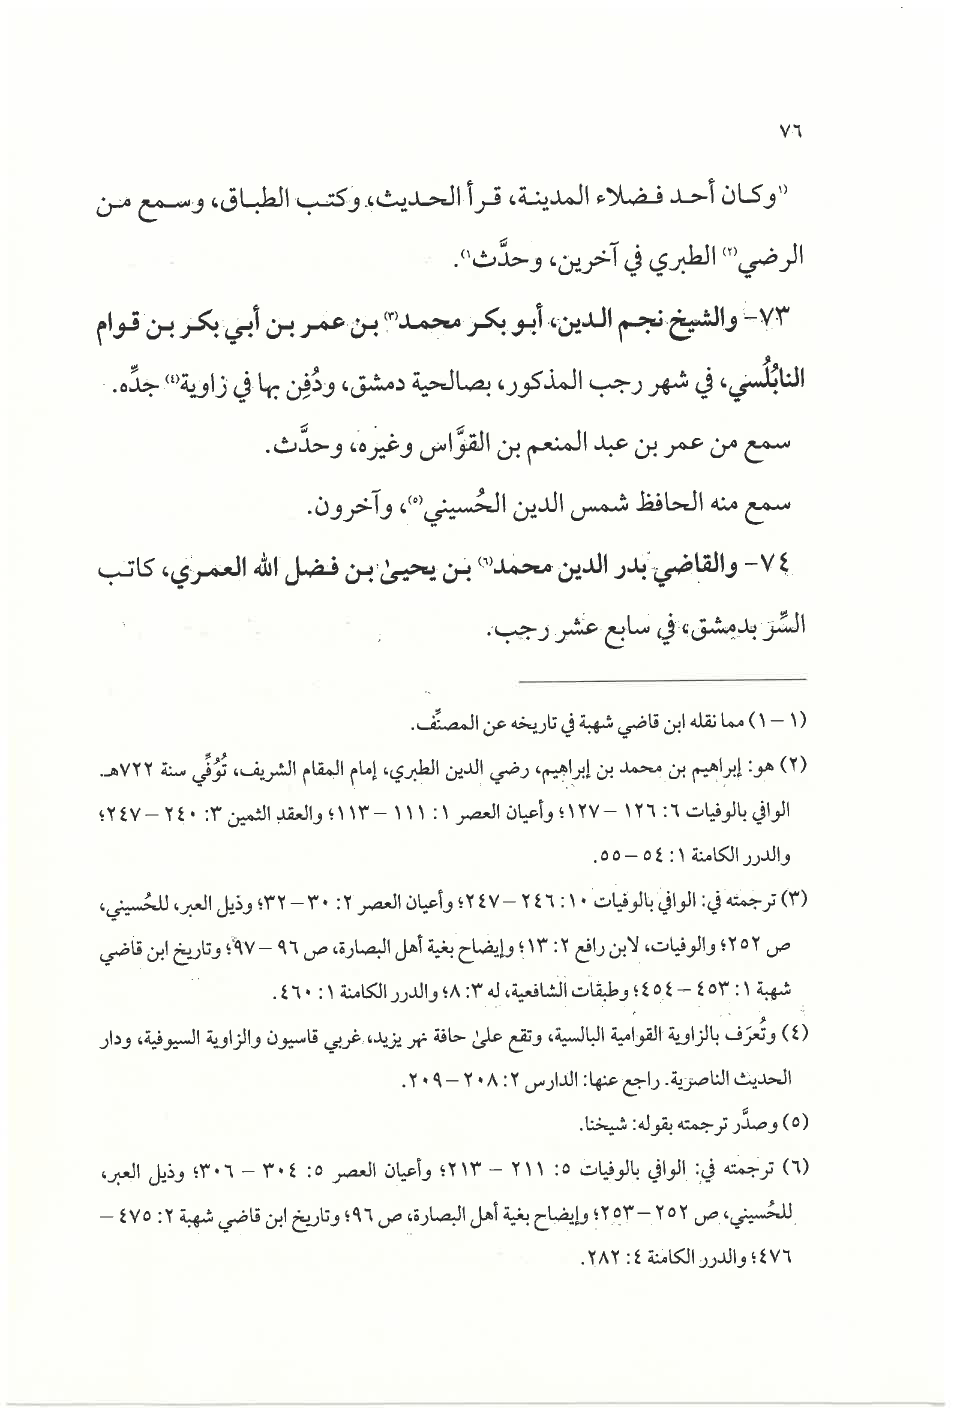 ٧٦
⁽¹وكان أحد فضلاء المدينة، قرأ الحديث، وكتب الطباق، وسمع من
الرضي(٢) الطبري في آخرين، وحدَّث¹⁾.
٧٣- والشيخ نجم الدين، أبو بكر محمد(٣) بن عمر بن أبي بكر بن قوام
النابُلُسي، في شهر رجب المذكور، بصالحية دمشق، ودُفِن بها في زاوية(٤) جدِّه.
سمع من عمر بن عبد المنعم بن القوَّاس وغيره، وحدَّث.
سمع منه الحافظ شمس الدين الحُسيني(٥)، وآخرون.
٧٤- والقاضي بدر الدين محمد(٦) بن يحيىٰ بن فضل الله العمري، كاتب
السِّر بدمشق، في سابع عشر رجب.
(١-١) مما نقله ابن قاضي شهبة في تاريخه عن المصنِّف.
(٢) هو: إبراهيم بن محمد بن إبراهيم، رضي الدين الطبري، إمام المقام الشريف، تُوُفِّي سنة ٧٢٢هـ.
الوافي بالوفيات ٦: ١٢٦-١٢٧؛ وأعيان العصر ١: ١١١-١١٣؛ والعقد الثمين ٣: ٢٤٠-٢٤٧؛
والدرر الكامنة ١: ٥٤-٥٥.
(٣) ترجمته في: الوافي بالوفيات ١٠: ٢٤٦-٢٤٧؛ وأعيان العصر ٢: ٣٠-٣٢؛ وذيل العبر، للحُسيني،
ص ٢٥٢؛ والوفيات، لابن رافع ٢: ١٣؛ وإيضاح بغية أهل البصارة، ص ٩٦-٩٧؛ وتاريخ ابن قاضي
شهبة ١: ٤٥٣-٤٥٤؛ وطبقات الشافعية، له ٣: ٨؛ والدرر الكامنة ١: ٤٦٠.
(٤) وتُعرَف بالزاوية القوامية البالسية، وتقع علىٰ حافة نهر يزيد، غربي قاسيون والزاوية السيوفية، ودار
الحديث الناصرية. راجع عنها: الدارس ٢: ٢٠٨-٢٠٩.
(٥) وصدَّر ترجمته بقوله: شيخنا.
(٦) ترجمته في: الوافي بالوفيات ٥: ٢١١-٢١٣؛ وأعيان العصر ٥: ٣٠٤-٣٠٦؛ وذيل العبر،
للحُسيني، ص ٢٥٢-٢٥٣؛ وإيضاح بغية أهل البصارة، ص ٩٦؛ وتاريخ ابن قاضي شهبة ٢: ٤٧٥-
٤٧٦؛ والدرر الكامنة ٤: ٢٨٢.